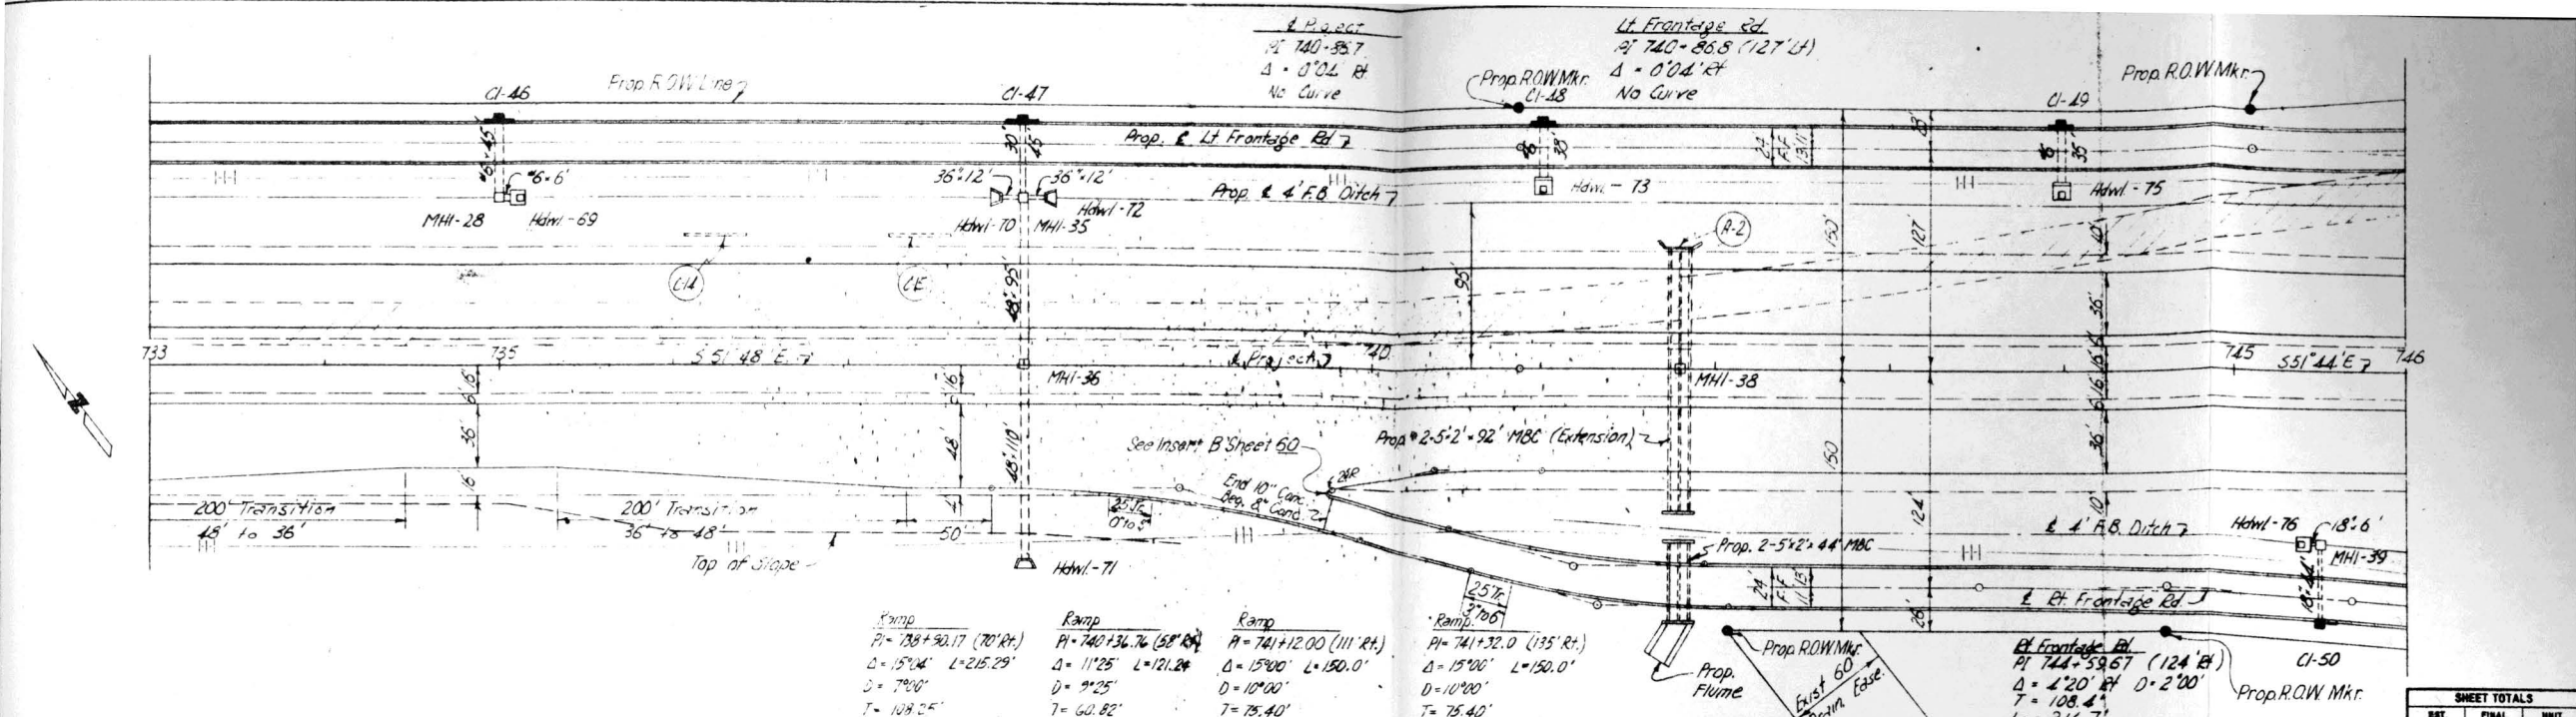 ℄ Project
PI 740+86.7
Δ = 0°04' Rt
No Curve
Lt. Frontage Rd.
PI 740+86.8 (127' Lt)
Δ = 0°04' Rt
No Curve
Prop. R.O.W. Line
Prop. R.O.W. Mkr.
Prop. R.O.W. Mkr.
CI-46
CI-47
CI-48
CI-49
Prop. ℄ Lt. Frontage Rd.
30'
45'
38'
35'
24'
F-F
23'
36"×12'
36"×12'
Prop. ℄ 4' F.B. Ditch
MHI-28
Hdwl.-69
Hdwl-70
MHI-35
Hdwl-72
Hdwl-73
Hdwl.-75
A-2
150'
127'
40'
95'
48"-95'
36'
733
735
S 51° 48' E.
℄ Project
740
745
S 51° 44' E
746
MHI-36
MHI-38
36'
16'
48'
48"-110'
See Insert B Sheet 60
Prop. 2-5'×2'×92' MBC (Extension)
150
36'
End 10" Conc.
Beg. 8" Conc.
200' Transition
48' to 36'
200' Transition
36' to 48'
50'
25' Tr.
Top of Slope
Hdwl.-71
124'
10'
℄ 4' F.B. Ditch
Hdwl-76
18"-6'
MHI-39
Prop. 2-5'×2'×44' MBC
24'
F-F
26'
℄ Rt. Frontage Rd.
18"-44'
25' Tr.
3" to 6"
Ramp
PI = 738+90.17 (70' Rt.)
Δ = 15°04' L=215.29'
D = 7°00'
T = 108.25'
Ramp
PI = 740+36.76 (58' Rt)
Δ = 11°25' L=121.24
D = 9°25'
T = 60.82'
Ramp
PI = 741+12.00 (111' Rt.)
Δ = 15°00' L=150.0'
D = 10°00'
T = 75.40'
Ramp
PI = 741+32.0 (135' Rt.)
Δ = 15°00' L=150.0'
D = 10°00'
T = 75.40'
Prop. Flume
Prop. R.O.W. Mkr.
Exist 60'
Drain. Ease.
Rt. Frontage Rd.
PI 744+59.67 (124' Rt)
Δ = 4°20' Rt D=2°00'
T = 108.4'
CI-50
Prop. R.O.W. Mkr.
SHEET TOTALS
EST. FINAL UNIT